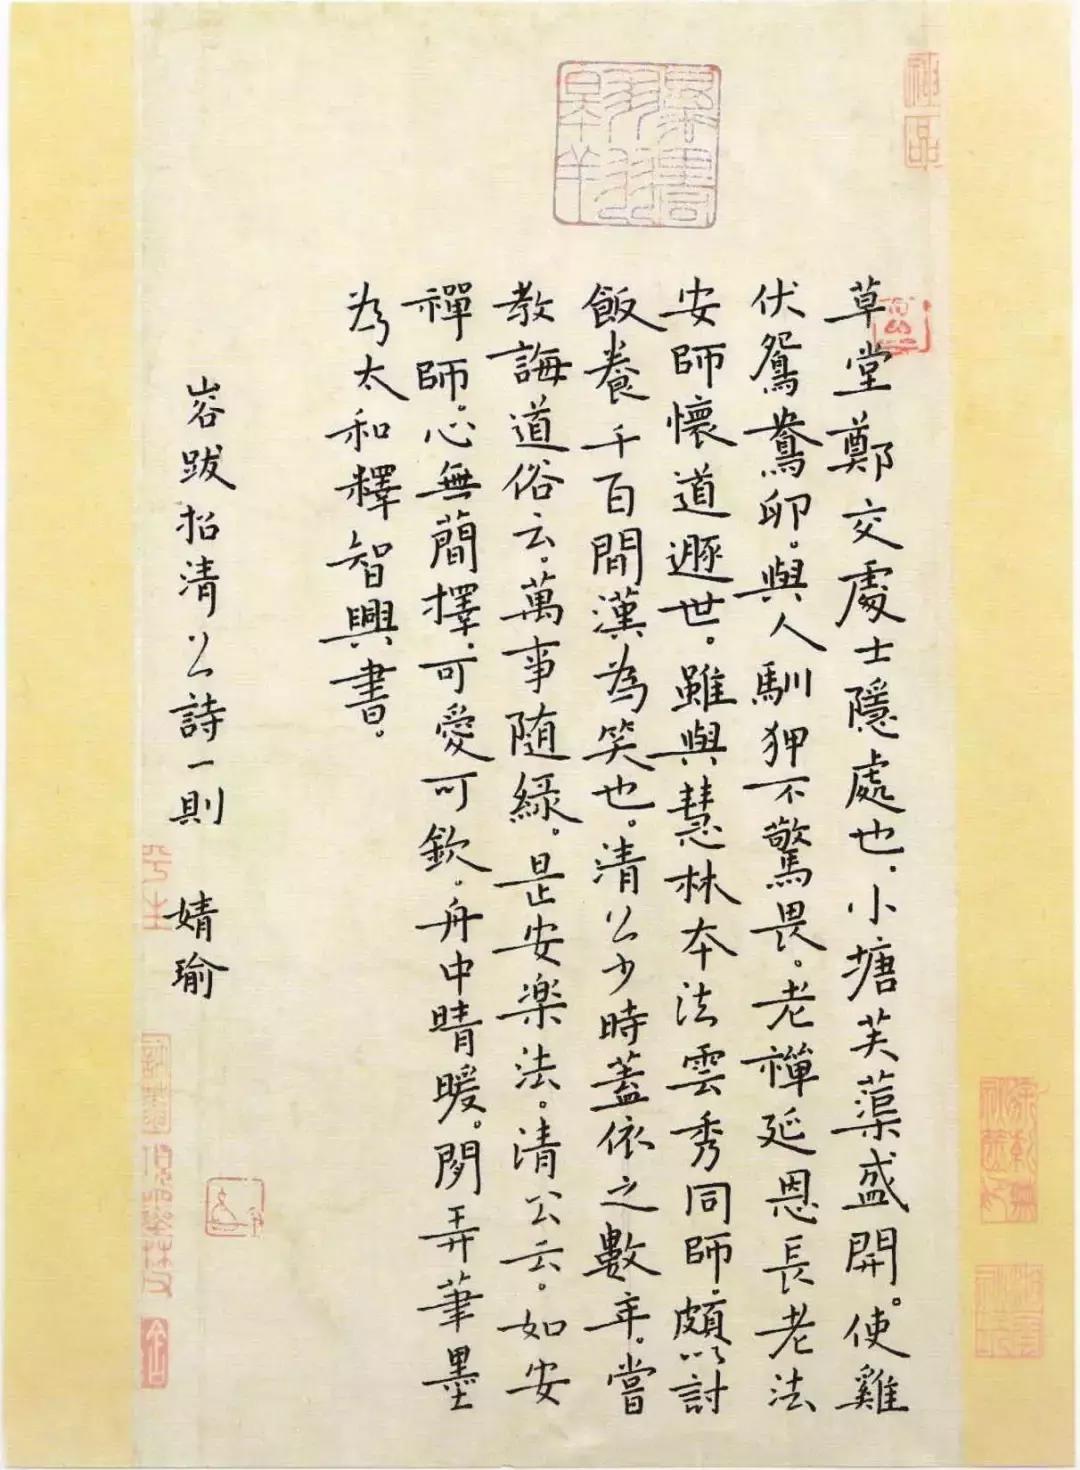 草堂鄭交處士隱處也、小塘芙蕖盛開。使雞
伏鴛鴦卵。與人馴狎不驚畏。老禪延恩長老法
安師懷道遯世。雖與慧林本法雲秀同師。頗以討
飯養千百閒漢為笑也。清公少時蓋依之數年。嘗
教誨道俗云。萬事随緣。是安楽法。清公云。如安
禪師。心無簡擇、可愛可欽。舟中晴暖。閒弄筆墨
為太和釋智興書。
谷跋招清公詩一則 婧瑜